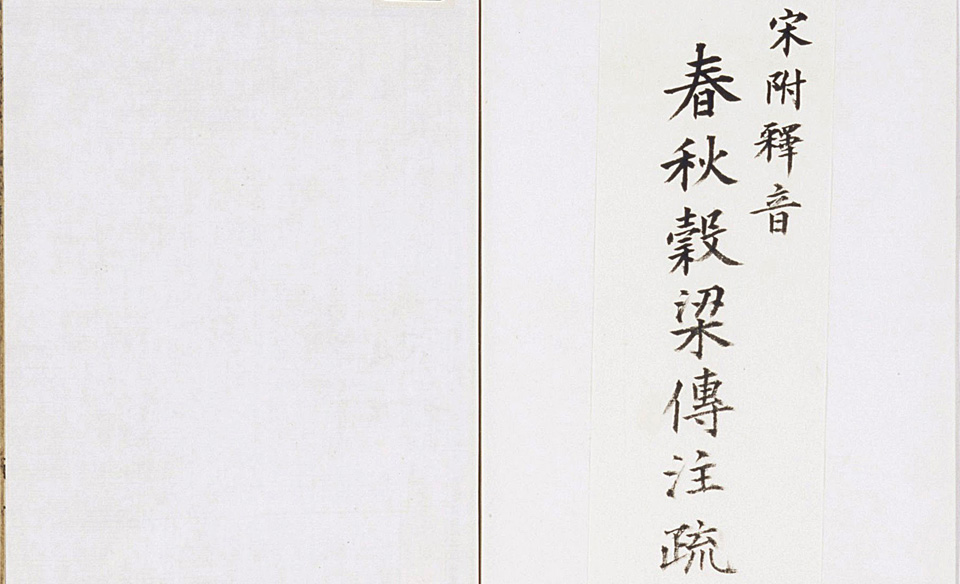 宋附釋音
春秋穀梁傳注疏